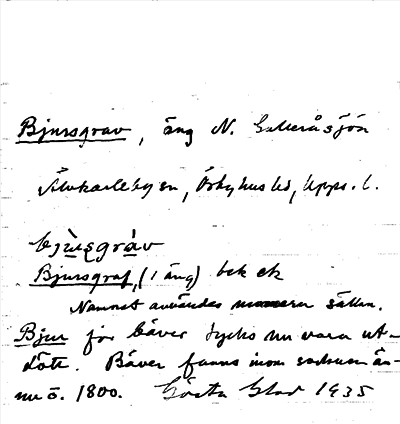 Bjursgrav, äng N. Gallråsjön
Älvkarleby sn, Örbyhus hd, Upps. l.
bju̇sgràv
Bjursgraf, (1 äng) bek ek
Namnet användes numera sällan.
Bjur för bäver tycks nu vara ut-
dött. Bäver fanns inom socknen än-
nu ö. 1800. Gösta Glad 1935